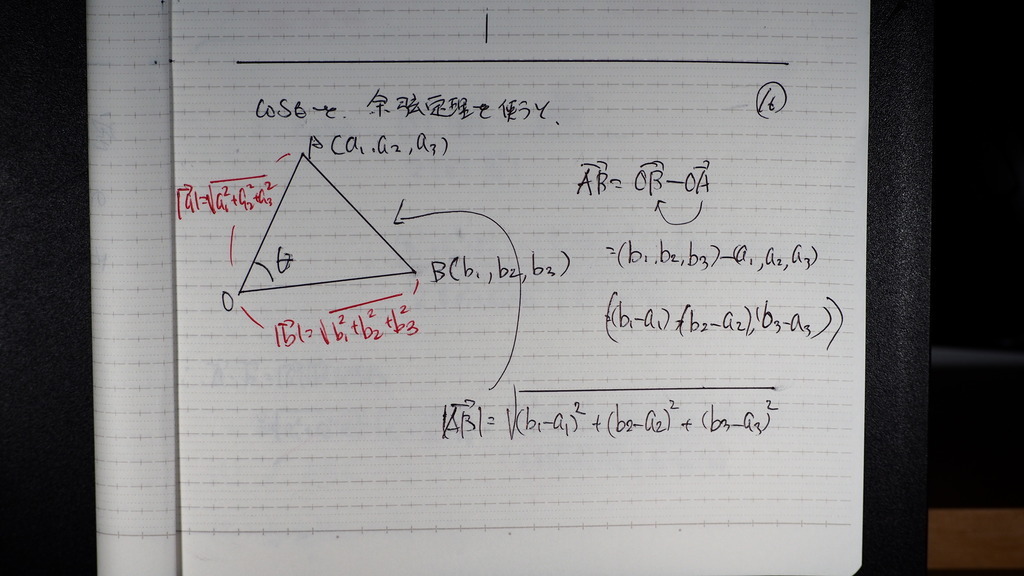 cosθを余弦定理を使うと、
⑯
A(a₁,a₂,a₃)
|a⃗|=√a₁²+a₂²+a₃²
θ
O
B(b₁,b₂,b₃)
|b⃗|=√b₁²+b₂²+b₃²
AB⃗=OB⃗-OA⃗
=(b₁,b₂,b₃)-(a₁,a₂,a₃)
((b₁-a₁),(b₂-a₂),(b₃-a₃))
|AB⃗|=√(b₁-a₁)²+(b₂-a₂)²+(b₃-a₃)²